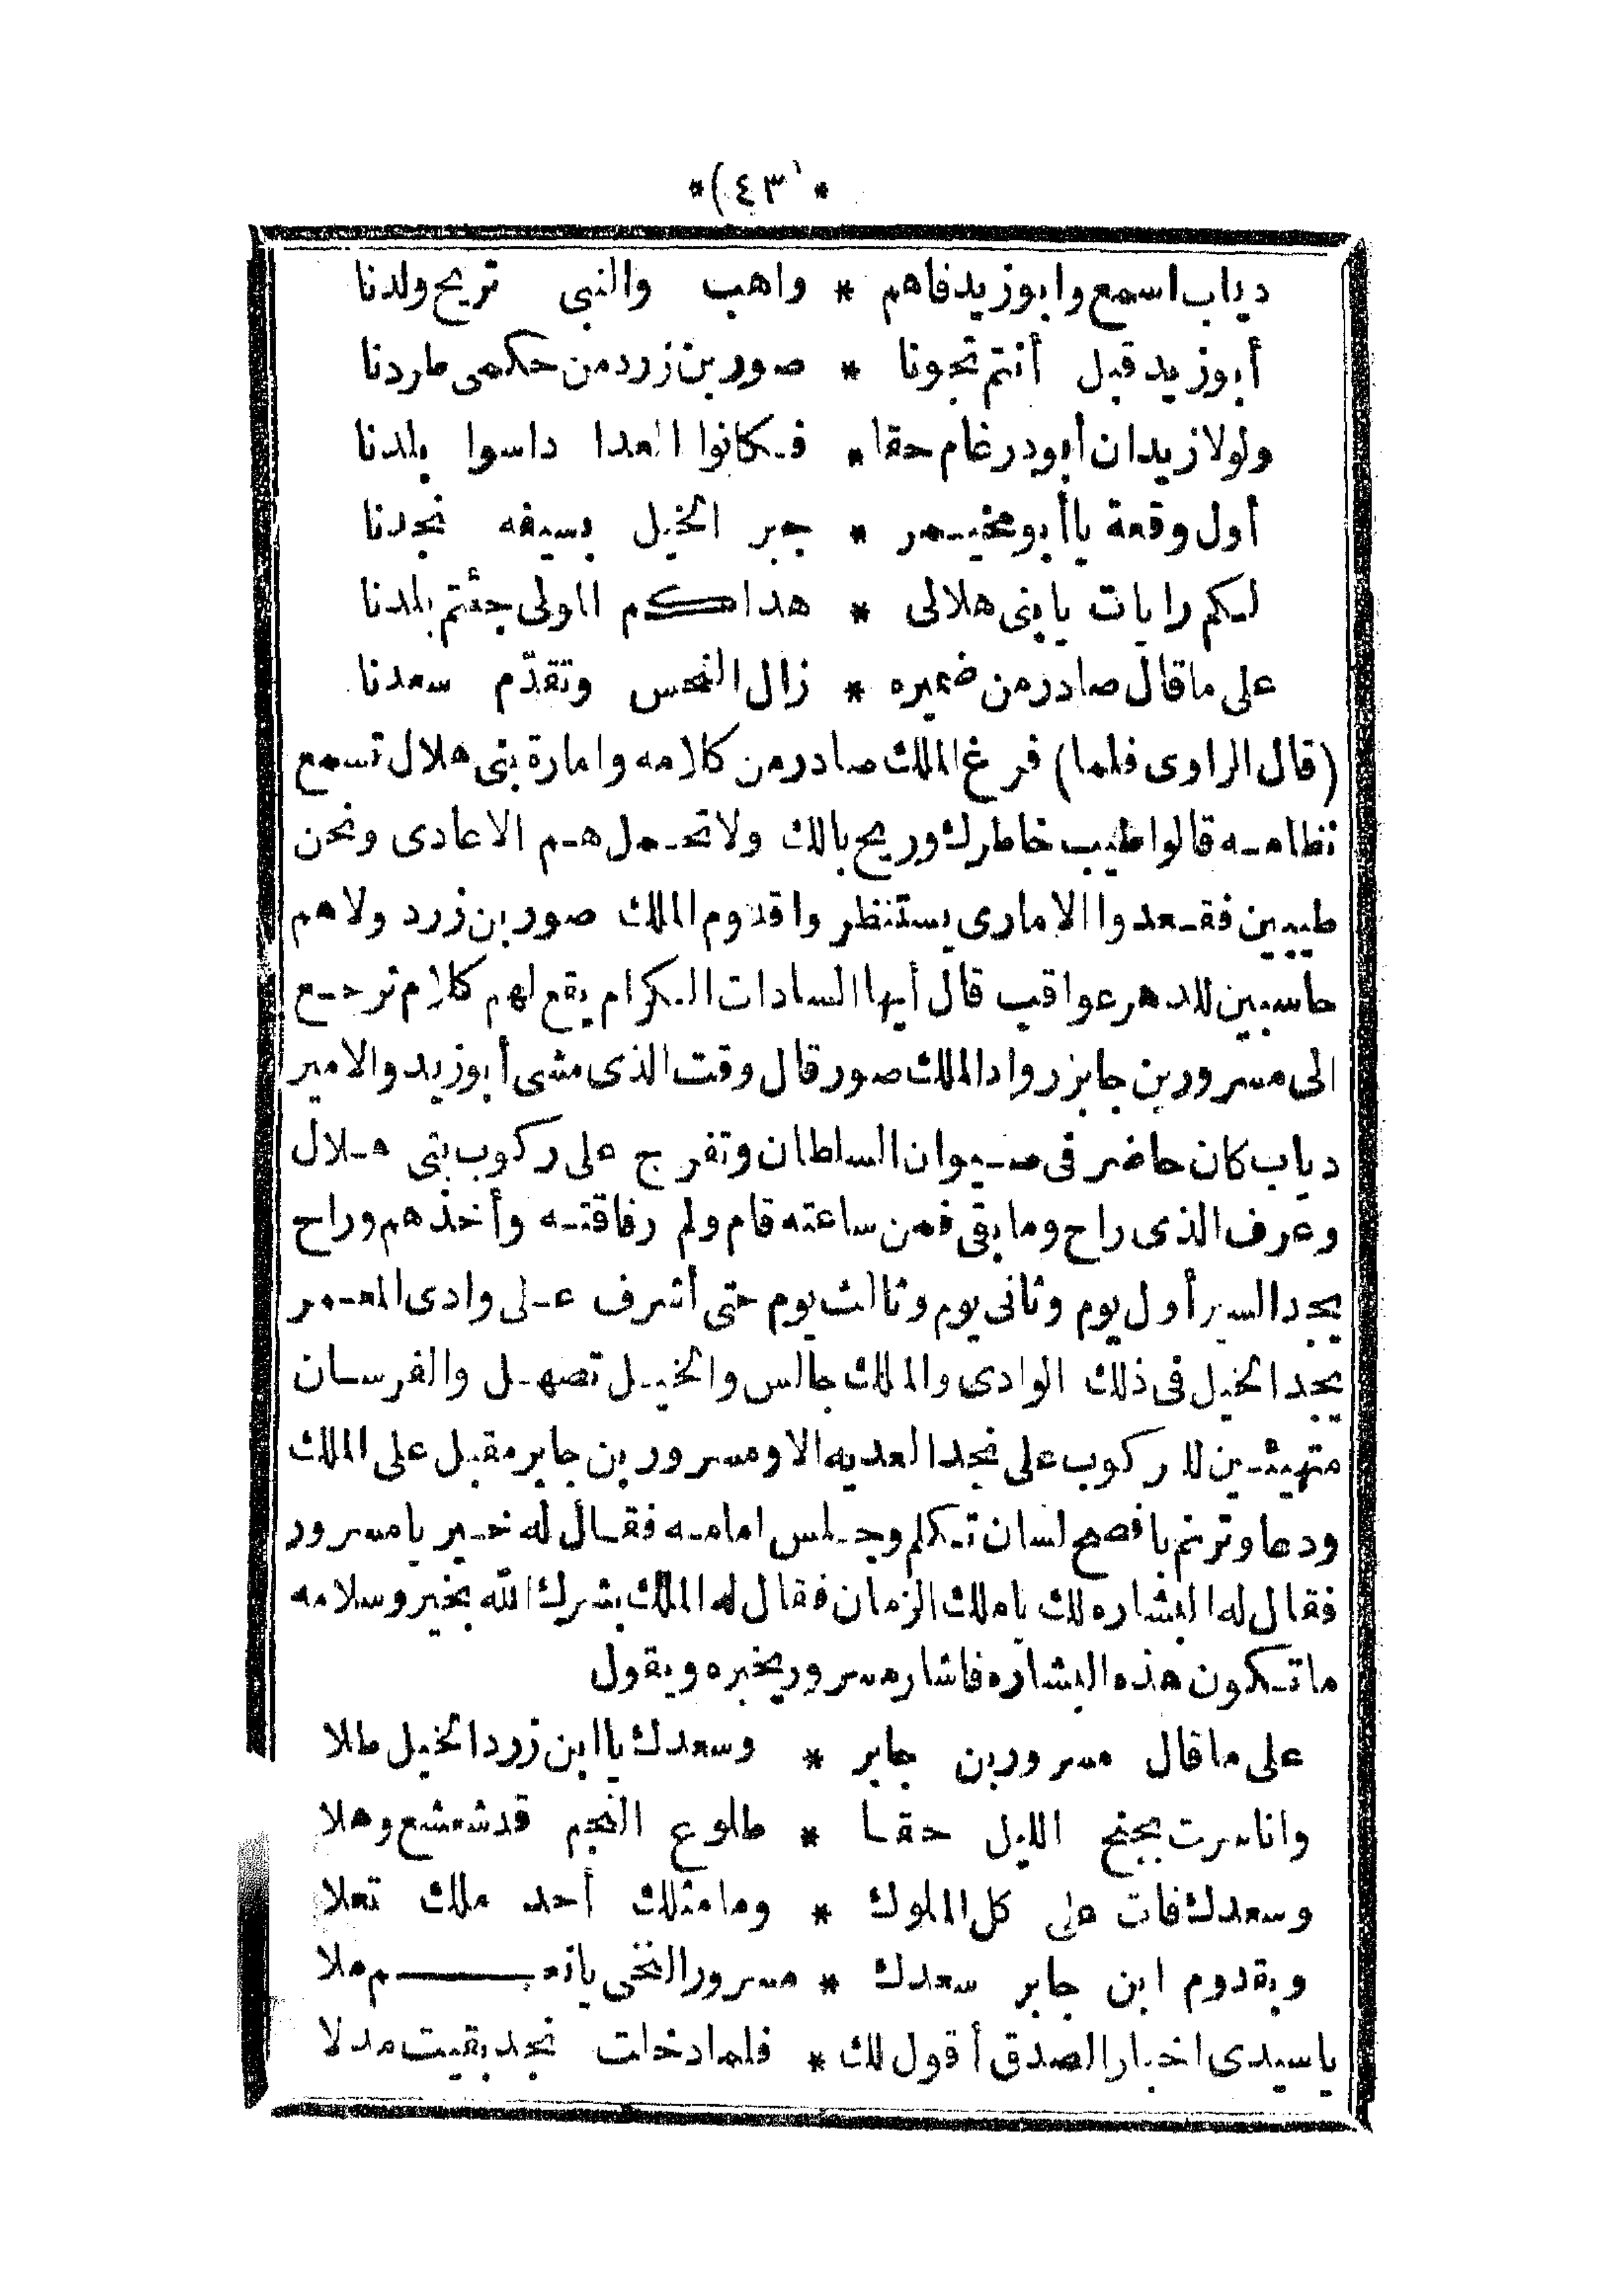 *(٤٣)*
دياب اسمع وابوزيد فاهم * واهب والنبى تريح ولدنا
أبوزيد قبل أنتم تجونا * صور بن زرد من حكمى طاردنا
ولولا زيدان أبو درغام حقا * فكانوا العدا داسوا بلدنا
أول وقعة يا أبو مخيمر * جبر الخيل بسيفه نجدنا
لكم رايات يا بنى هلالى * هداكم المولى جئتم بلدنا
على ما قال صادر من ضميره * زال النحس وتقدّم سعدنا
(قال الراوى فلما) فرغ الملك صادر من كلامه وامارة بنى هلال تسمع
نظامه قالوا طيب خاطرك وريح بالك ولا تحمل هم الاعادى ونحن
طيبين فقعدوا الامارى يستنظروا قدوم الملك صور بن زرد ولاهم
حاسبين للدهر عواقب قال أيها السادات الكرام يقع لهم كلام ترجع
الى مسرور بن جابر رواد الملك صور قال وقت الذى مشى أبوزيد والامير
دياب كان حاضر فى صيوان السلطان وتفرج على ركوب بنى هلال
وعرف الذى راح وما بقى فمن ساعته قام ولم رفاقته وأخذهم وراح
يجد السير أول يوم وثانى يوم وثالث يوم حتى أشرف على وادى المعمر
يجد الخيل فى ذلك الوادى والملك جالس والخيل تصهل والفرسان
متهيئين للركوب على نجد العديه الا ومسرور بن جابر مقبل على الملك
ودعا وترنم بافصح لسان تكلم وجلس امامه فقال له خير يا مسرور
فقال له البشاره لك يا ملك الزمان فقال له الملك بشرك الله بخير وسلامه
ما تكون هذه البشاره فاشار مسرور يخبره ويقول
على ما قال مسرور بن جابر * وسعدك يا ابن زرد الخيل طلا
وانا سرت بجنح الليل حقا * طلوع النجم قد شعشع وهلا
وسعدك فات على كل الملوك * وما مثلك أحد ملك تعلا
وبقدوم ابن جابر سعدك * مسرور النخى
يا سيدى اخبار الصدق أقول لك * فلما دخلت نجد بقيت مدلا